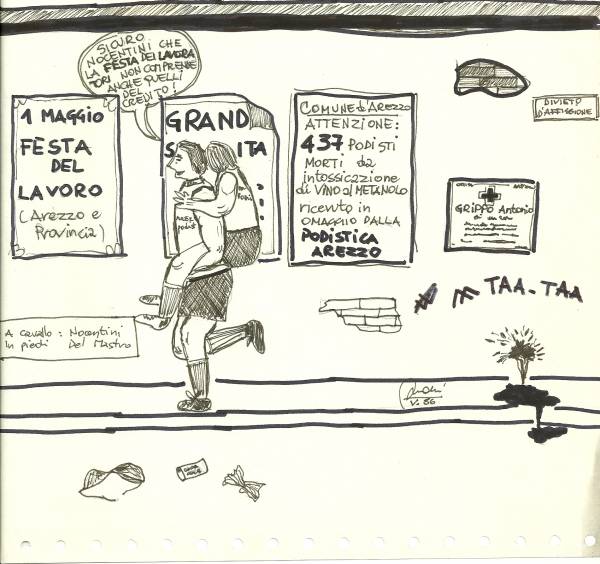 SICURO
NOCENTINI CHE
LA FESTA DEI LAVORA
TORI NON COMPRENDE
ANCHE QUELLI
DEL
CREDITO!
1 MAGGIO
FESTA
DEL
LAVORO
(Arezzo e
Provincia)
GRAND
S ITA
COMUNE di AREZZO
ATTENZIONE:
437 PODISTI
MORTI da
intossicazione
di VINO al METANOLO
ricevuto in
OMAGGIO DALLA
PODISTICA
AREZZO
DIVIETO
D'AFFISSIONE
GRIPPO Antonio
TAA-TAA
A cavallo: Nocentini
In piedi Del Mastro
V. 86